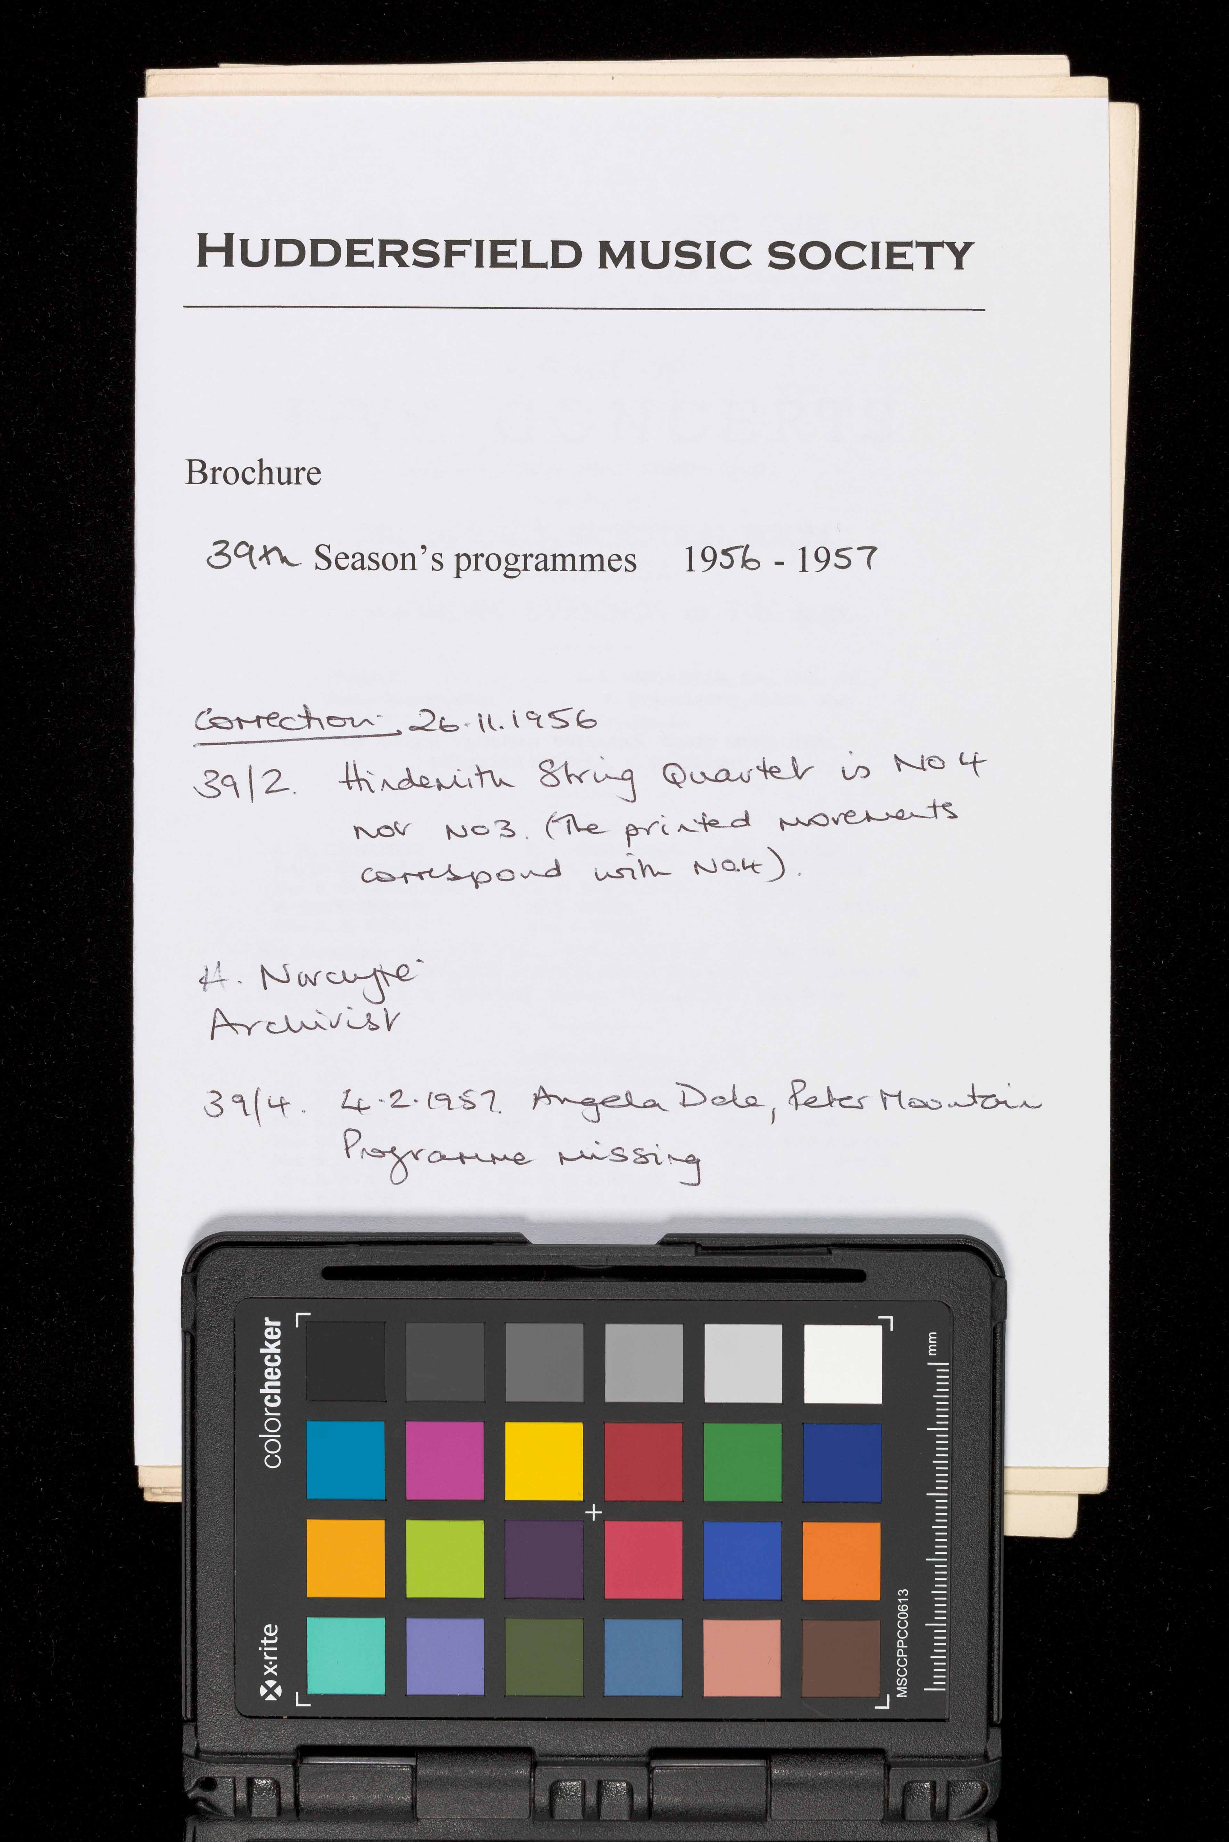 HUDDERSFIELD MUSIC SOCIETY
Brochure
39th Season's programmes 1956 - 1957
Correction. 26.11.1956
39/2. Hindemith String Quartet is No 4
not No3. (The printed movements
correspond with No.4).
H.
Archivist
39/4. 4.2.1957. Angela Dale, Peter Mountain
Programme missing
colorchecker
x-rite
mm
MSCCPPCC0613